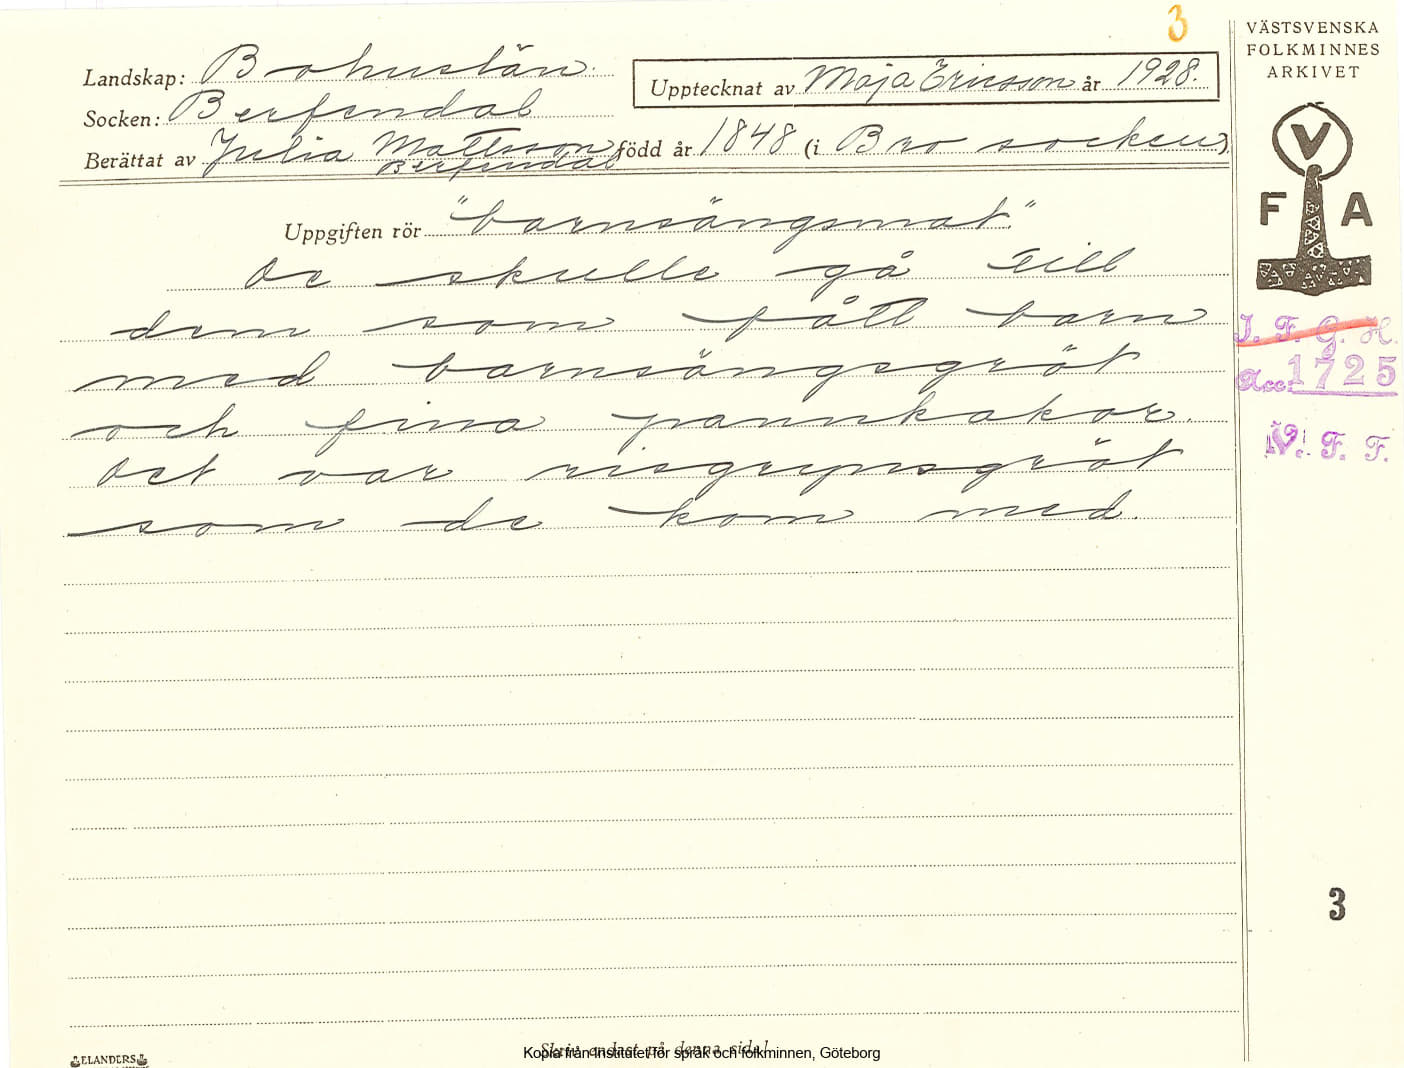 3
VÄSTSVENSKA
FOLKMINNES
ARKIVET
Landskap: Bohuslän.
Upptecknat av Maja Ericsson år 1928.
Socken: Berfendal
Berättat av Julia Mattsson född år 1848 (i Bro socken)
Berfendal
V
F A
Uppgiften rör "barnsängsmat".
De skulle gå till
dem som fått barn
med barnsängsgröt
och fina pannkakor.
Det var risgrynsgröt
som de kom med.
I. F. G. H.
Acc. 1725
V. F. F.
3
ELANDERS
Skriv endast på denna sida!
Kopia från Institutet för språk och folkminnen, Göteborg